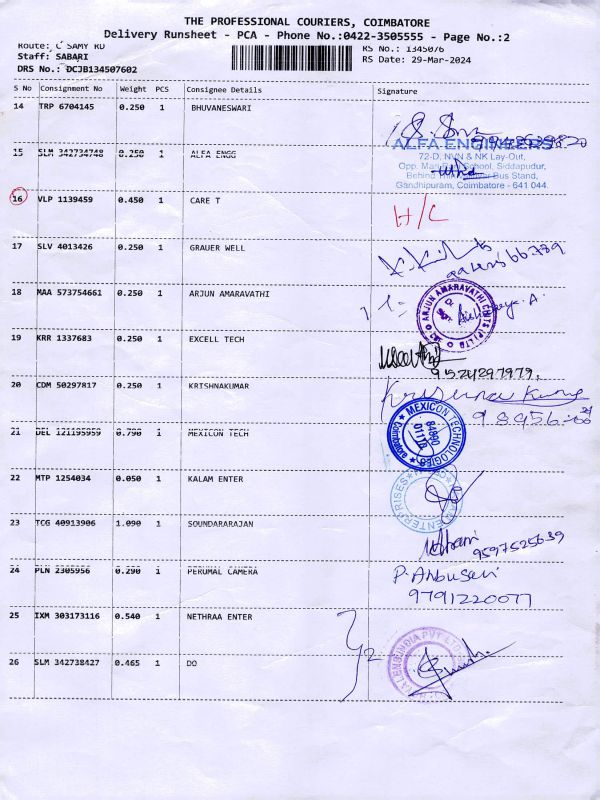 THE PROFESSIONAL COURIERS, COIMBATORE
Delivery Runsheet - PCA - Phone No.:0422-3505555 - Page No.:2
Route: C SAMY RD RS No.: 1345076
Staff: SABARI RS Date: 29-Mar-2024
DRS No.: DCJB134507602
S No Consignment No Weight PCS Consignee Details Signature
14 TRP 6704145 0.250 1 BHUVANESWARI
15 SLM 342734748 0.250 1 ALFA ENGG
ALFA ENGINEERS
72-D, NVN & NK Lay-Out,
Opp. School, Siddapudur,
Behind Bus Stand,
Gandhipuram, Coimbatore - 641 044.
16 VLP 1139459 0.450 1 CARE T H/C
17 SLV 4013426 0.250 1 GRAUER WELL
18 MAA 573754661 0.250 1 ARJUN AMARAVATHI
ARJUN AMARAVATHI CHITS (P) LTD
19 KRR 1337683 0.250 1 EXCELL TECH
9524297979.
20 CDM 50297817 0.250 1 KRISHNAKUMAR Krishna Kumar
98956
21 DEL 121195959 0.790 1 MEXICON TECH
MEXICON TECHNOLOGIES
84890
01118
Coimbatore
22 MTP 1254034 0.050 1 KALAM ENTER
ENTERPRISES
23 TCG 40913906 1.090 1 SOUNDARARAJAN
9597525639
24 PLN 2305956 0.290 1 PERUMAL CAMERA P. Anbuselvi
9791220077
25 IXM 303173116 0.540 1 NETHRAA ENTER
26 SLM 342738427 0.465 1 DO
INDIA PVT LTD